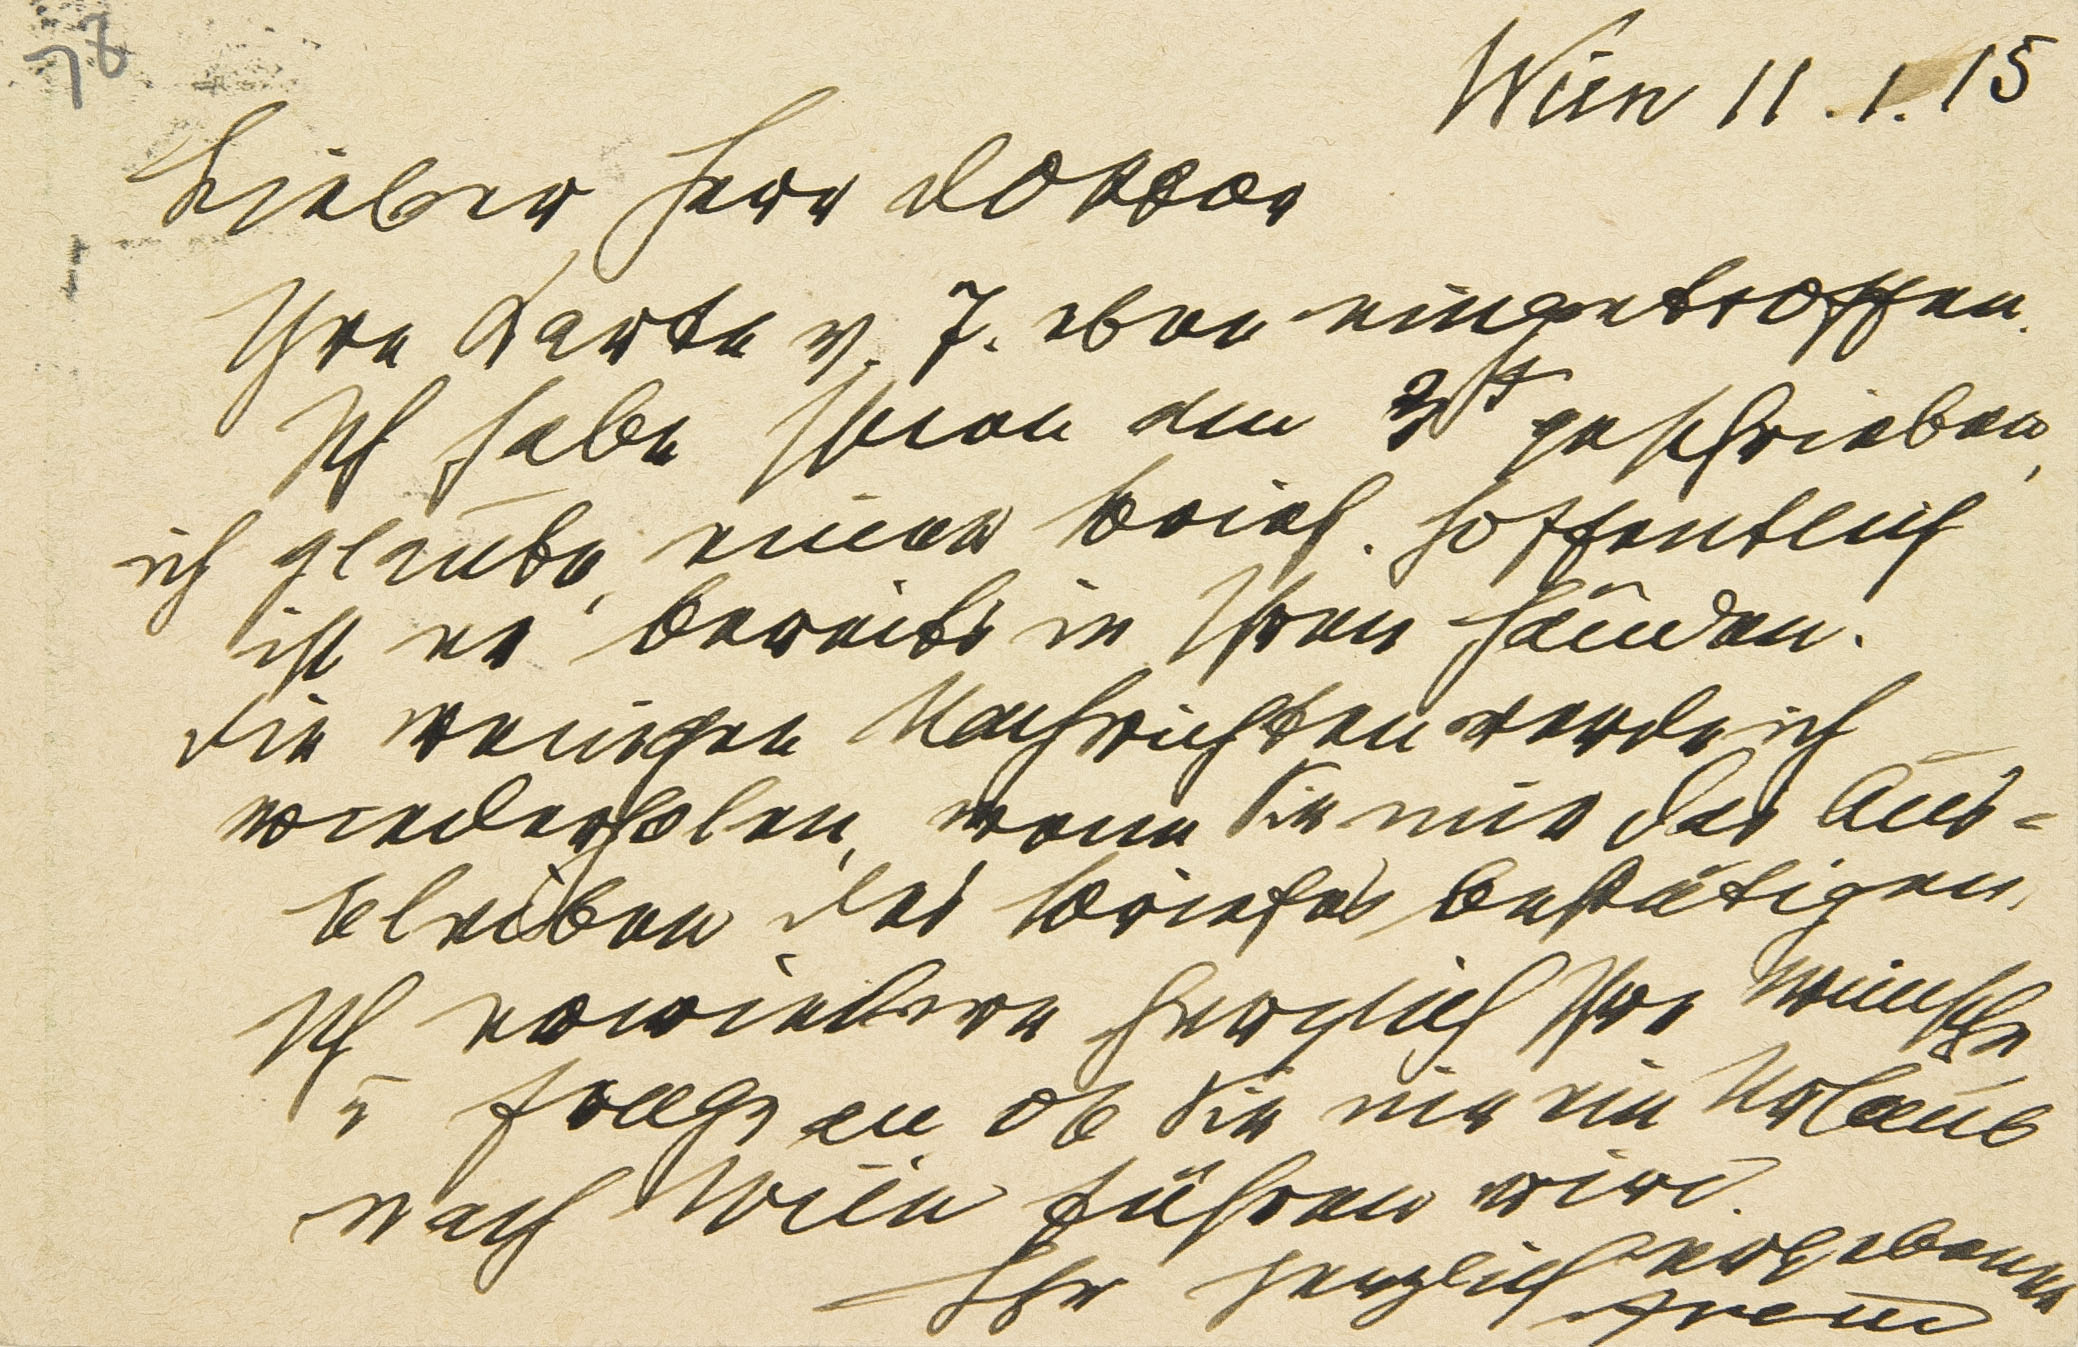 78
Wien 11.1.15
Lieber Herr Doktor
Ihre Karte v. 7. eben eingetroffen.
Ich habe schon am 3t geschrieben,
ich glaube, einen Brief. Hoffentlich
ist er bereits in Ihren Händen.
Die wenigen Nachrichten werde ich
wiederholen, wenn Sie mir das Aus-
bleiben des Briefes bestätigen.
Ich erwiedere herzlich Ihre Wünsche
u frage an ob Sie nie ein Urlaub
nach Wien führen wird.
Ihr herzlich ergebener
Freud